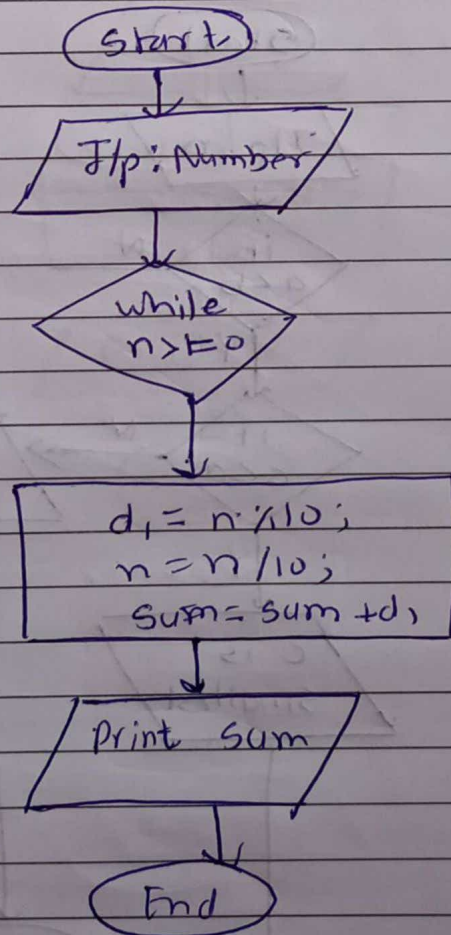 Start
I/p: Number
while
n>=0
d1 = n%10;
n = n/10;
sum = sum + d1
Print sum
End